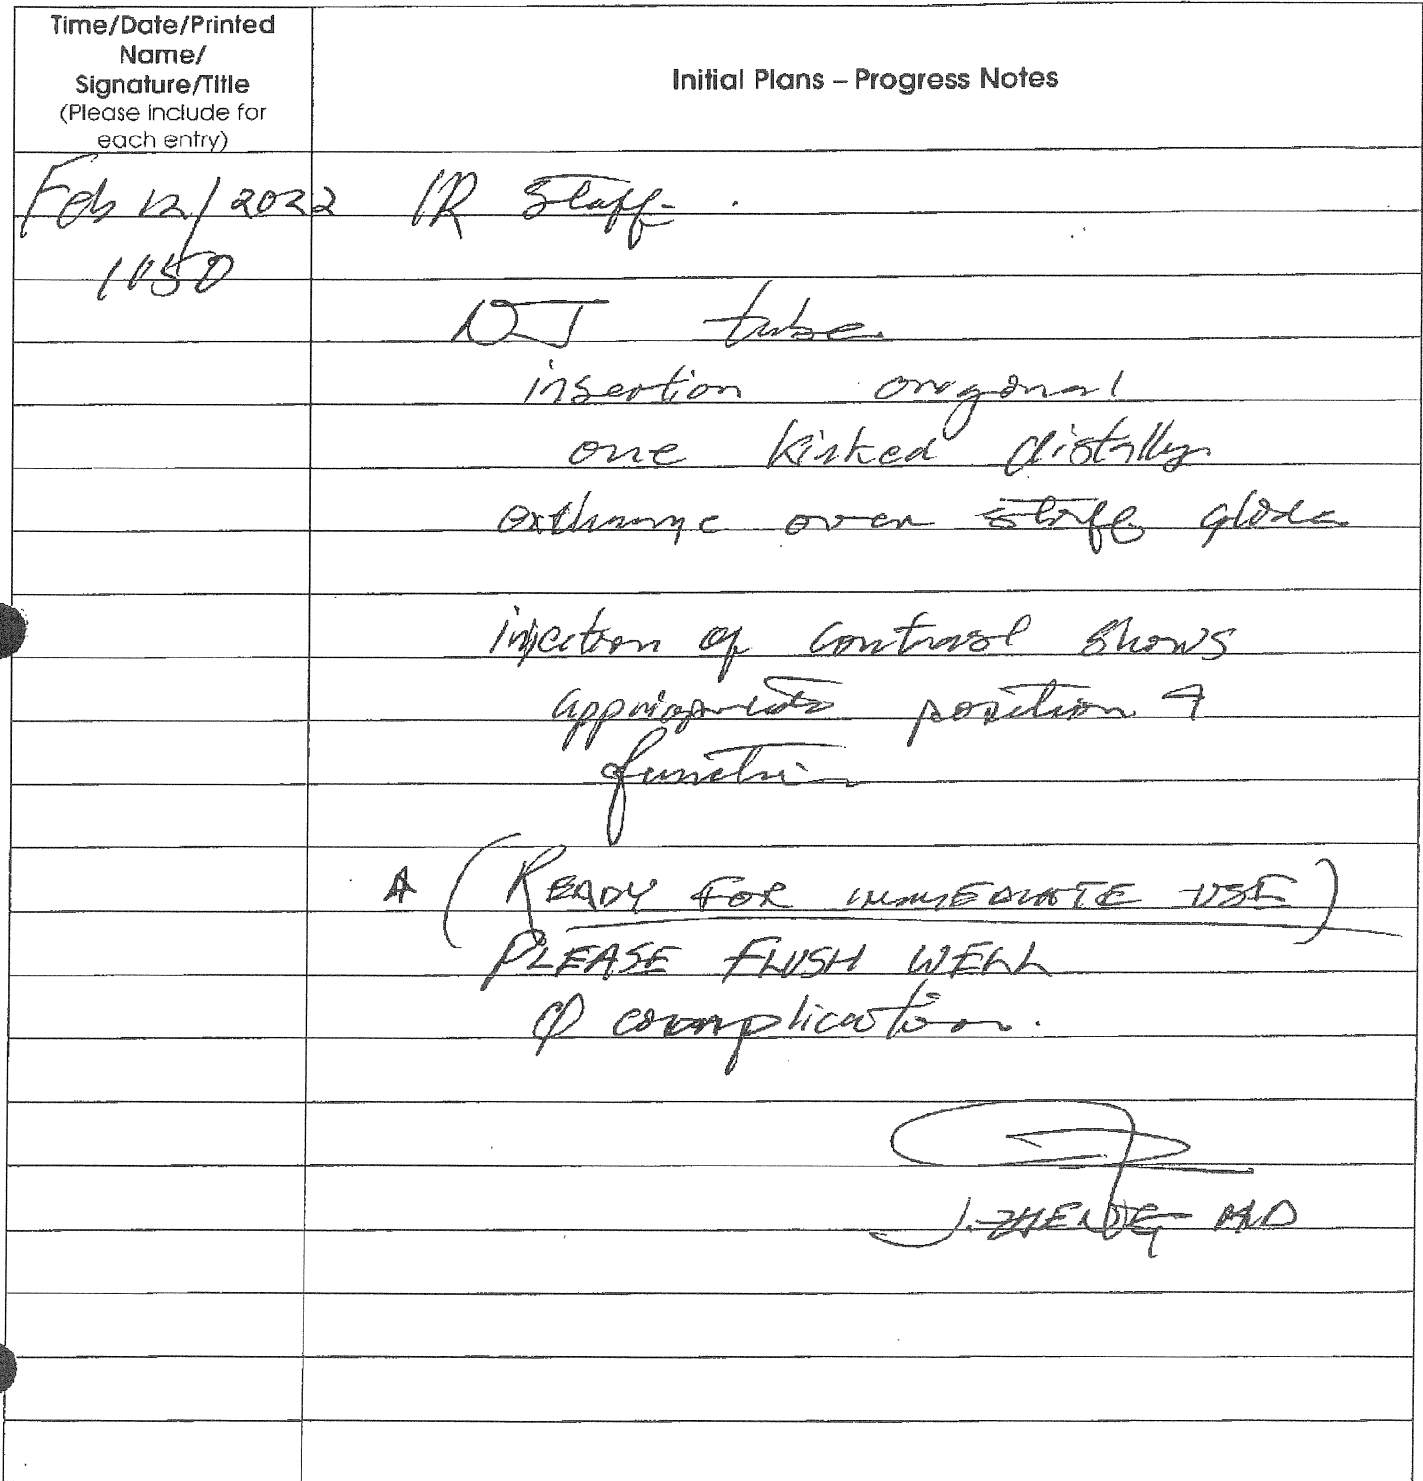 Time/Date/Printed
Name/
Signature/Title
(Please include for
each entry)
Initial Plans – Progress Notes
Feb 12/2022 IR Staff.
1150
NJ tube
insertion original
one kinked distally
exchange over stiff glide
injection of contrast shows
appropriate position &
function
(READY FOR IMMEDIATE USE)
PLEASE FLUSH WELL
∅ complication.
J. ZHENG MD